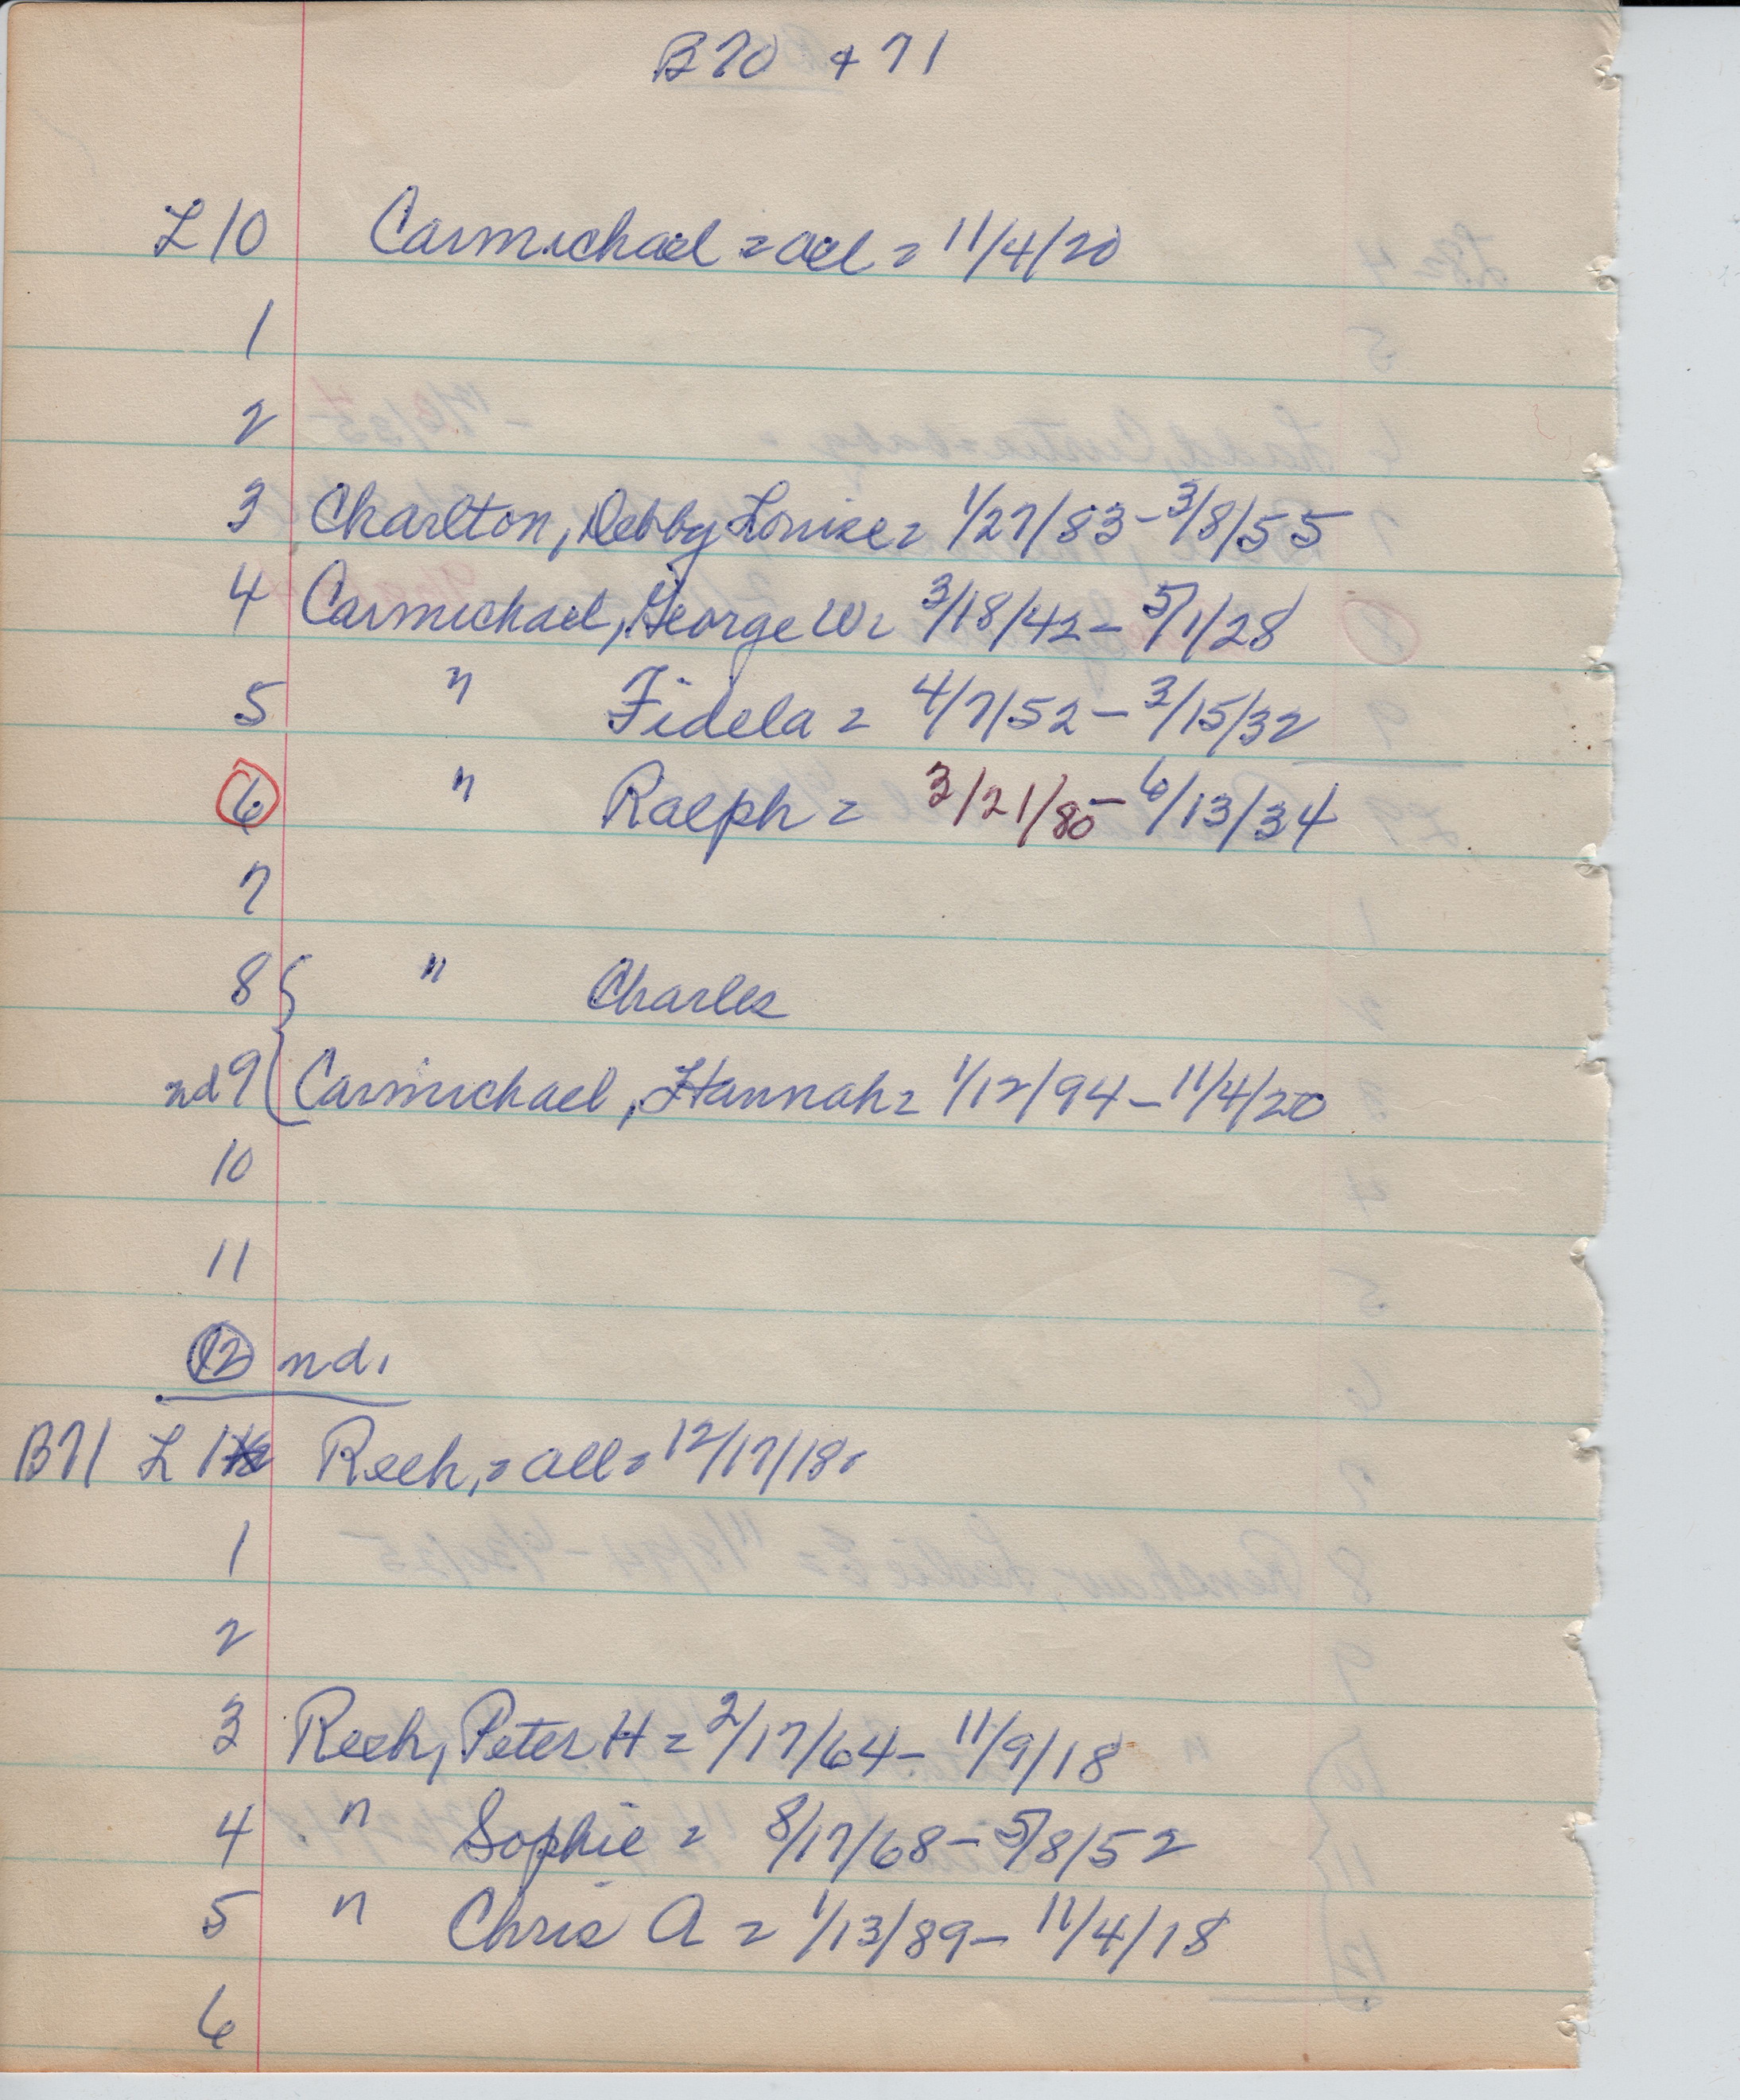 B70 & 71
L10 Carmichael = all = 11/4/20
1
2
3 Charlton, Debby Louise = 1/27/83 - 3/8/55
4 Carmichael, George W = 3/18/42 - 5/1/28
5 " Fidela = 4/7/52 - 3/15/32
6 " Ralph = 3/21/80 - 6/13/34
7
8 { " Charles
nd 9 { Carmichael, Hannah = 1/12/94 - 11/4/20
10
11
12 nd.
B71 L1 Reeh, = all = 12/17/18.
1
2
3 Reeh, Peter H = 2/17/64 - 11/9/18
4 " Sophie = 8/17/68 - 5/8/52
5 " Chris A = 1/13/89 - 11/4/18
6